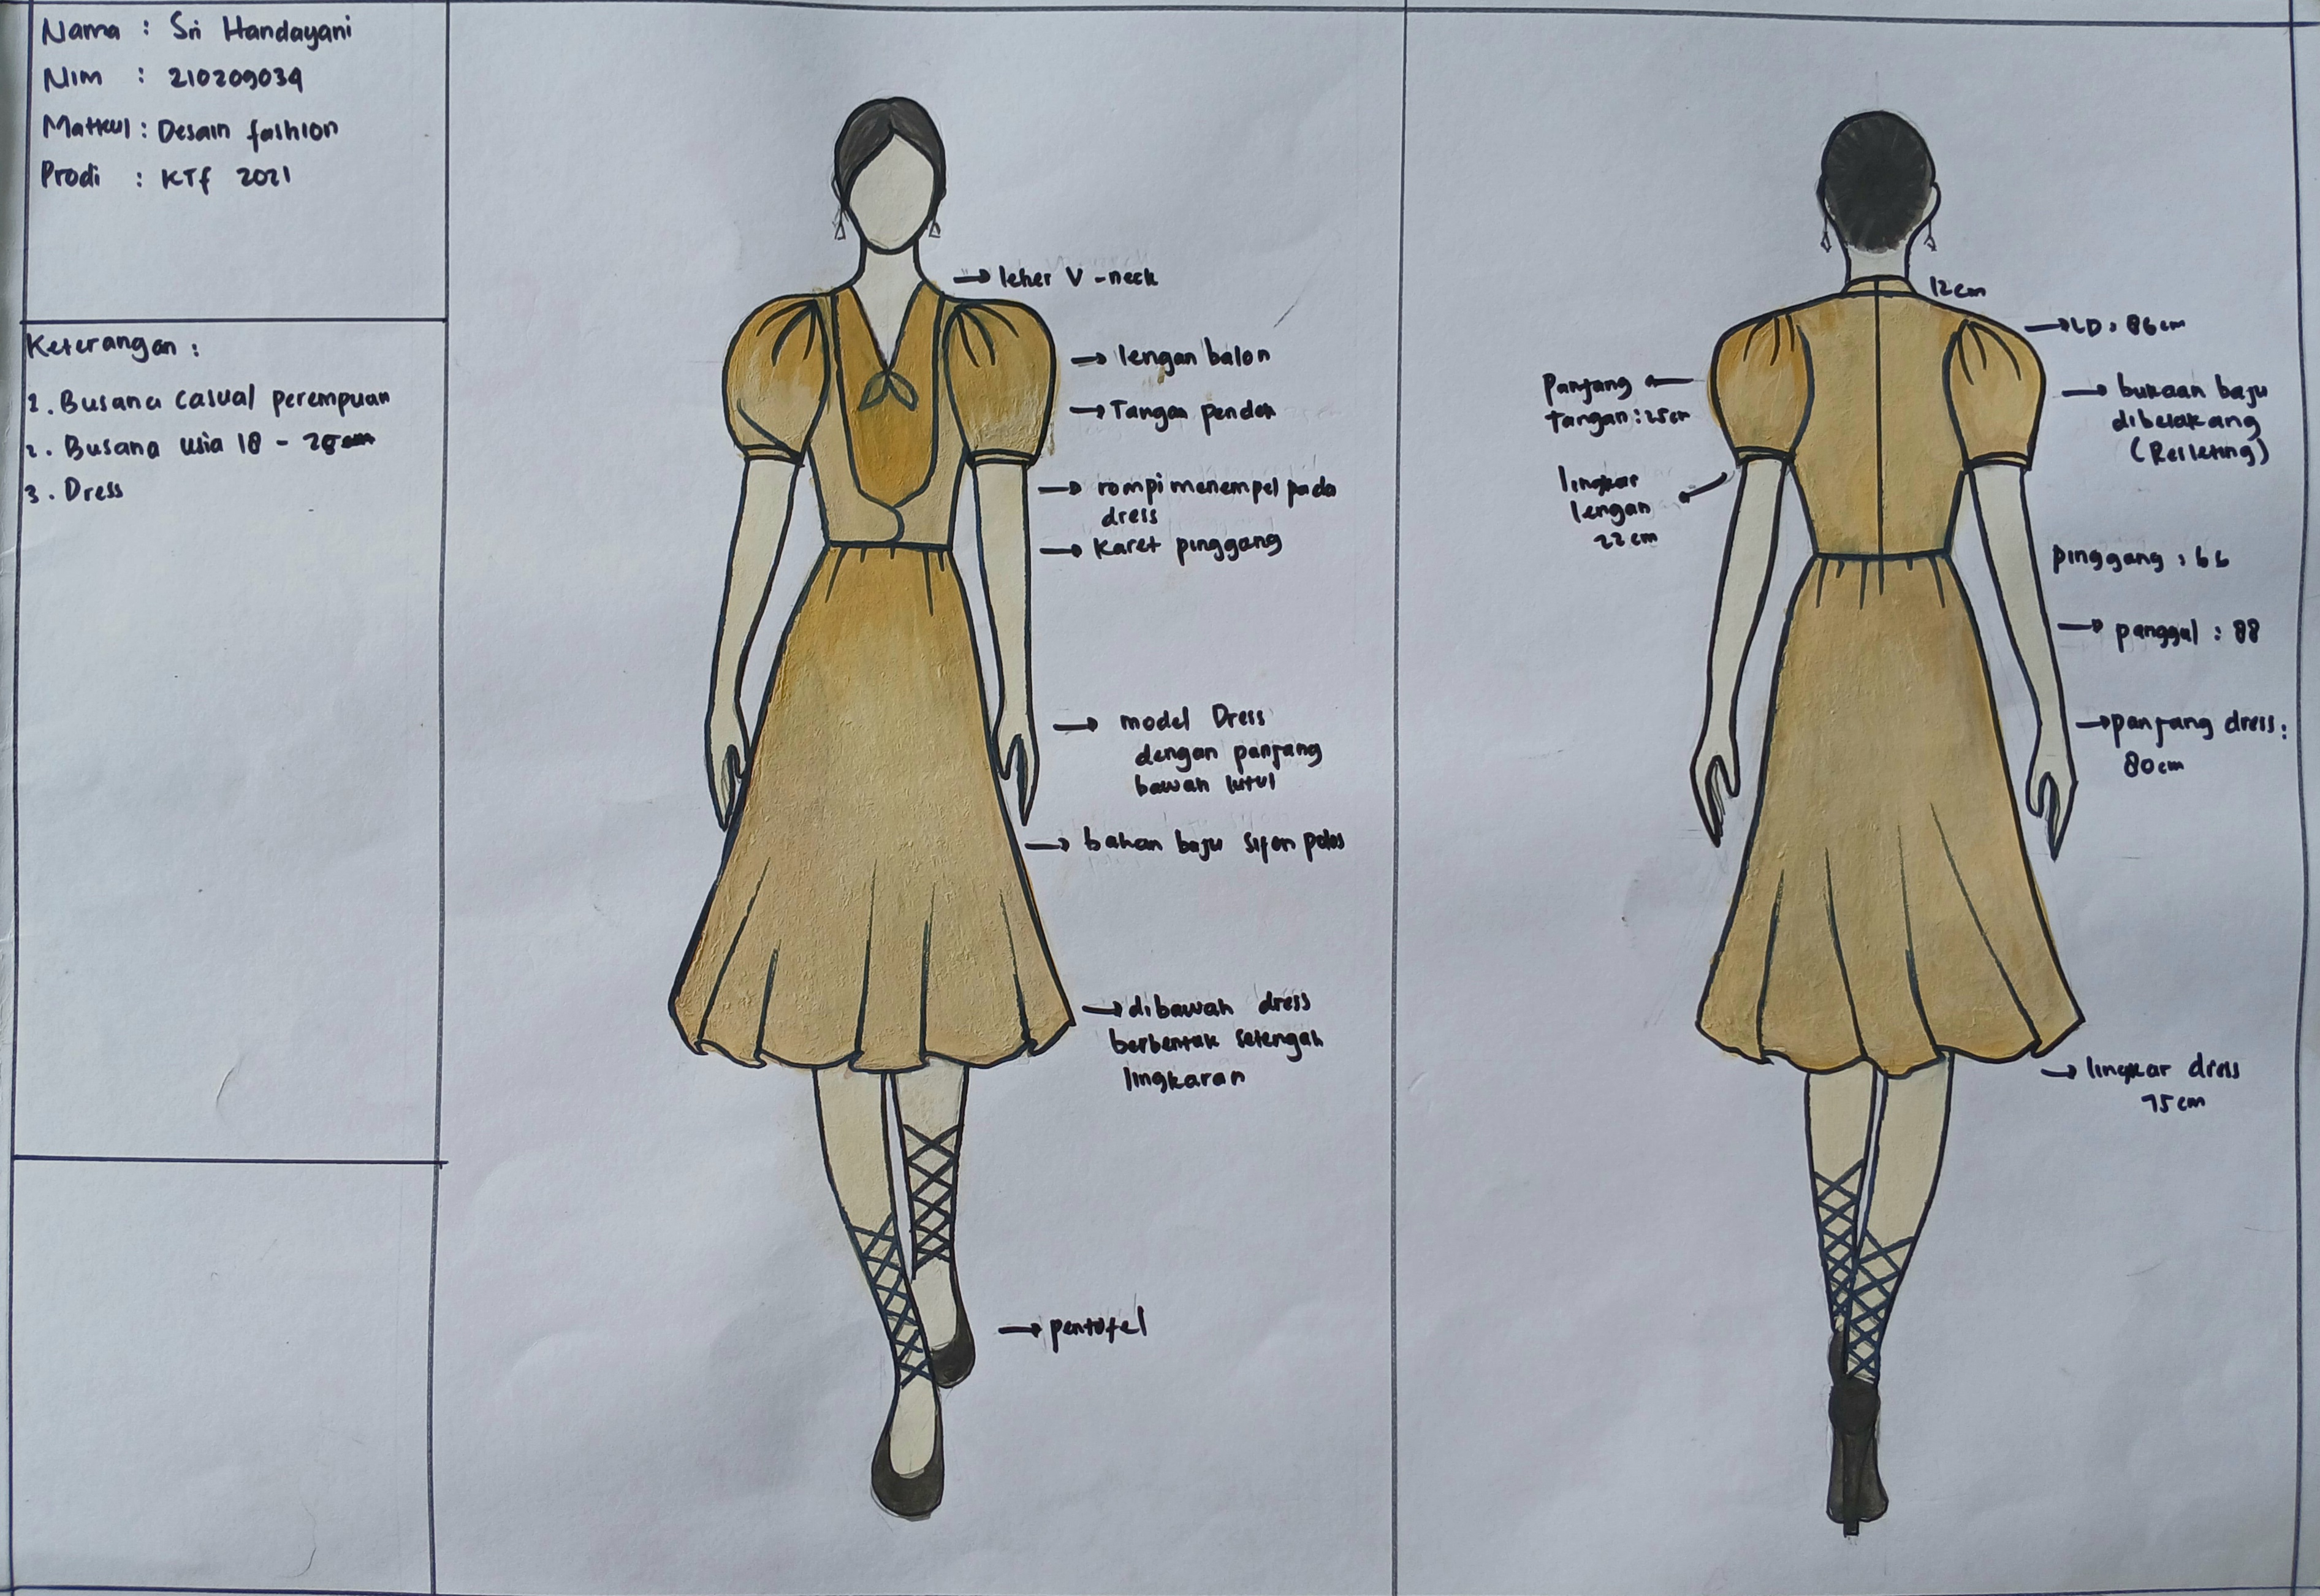 Nama : Sri Handayani
Nim : 210209034
Matkul : Desain fashion
Prodi : KTf 2021
Keterangan :
1. Busana Casual perempuan
2. Busana usia 18 -
3. Dress
leher V-neck
lengan balon
Tangan pendek
rompi menempel pada
dress
Karet pinggang
model Dress
dengan panjang
bawah lutut
bahan baju sifon polos
dibawah dress
berbentuk setengah
lingkaran
pentofel
12 cm
LD : 86 cm
panjang
tangan : 25cm
bukaan baju
dibelakang
(Resleting)
lingkar
lengan
22 cm
pinggang : 66
panggul : 88
panjang dress :
80 cm
lingkar dress
75 cm